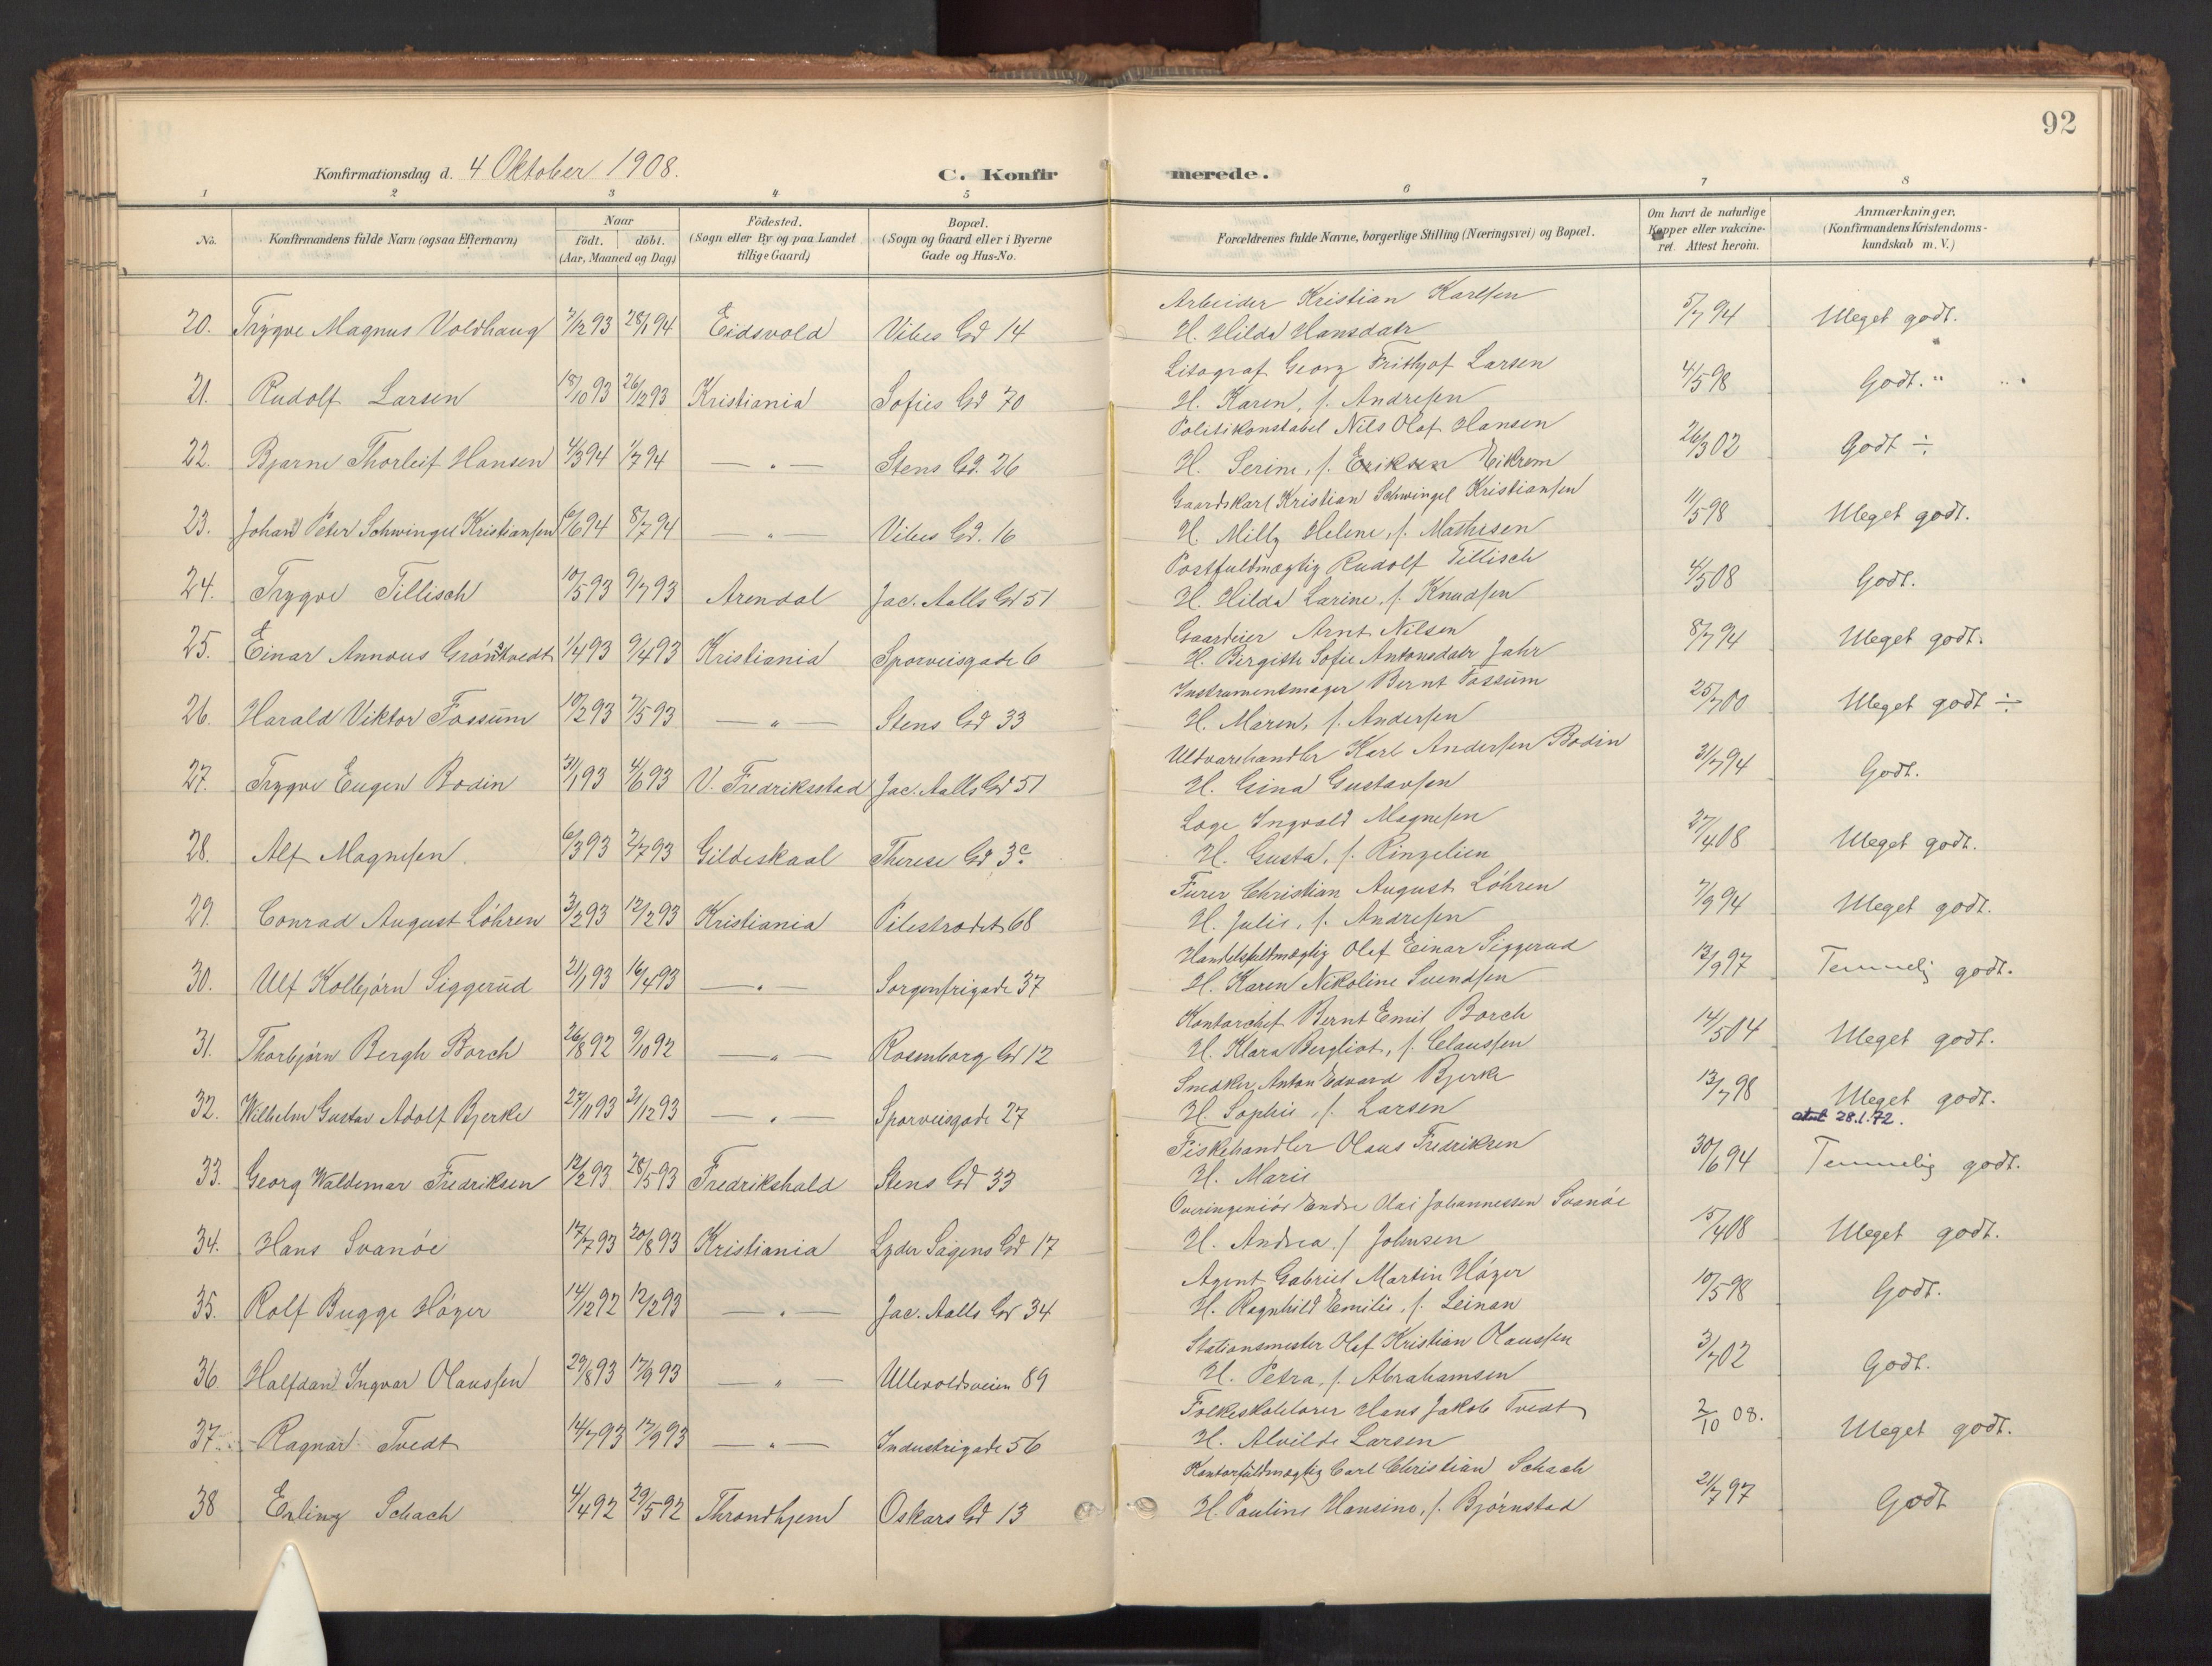 92
Konfirmationsdag d. 4 Oktober 1908.
C. Konfirmerede.
1 2 3 4 5 6 7 8
No. Konfirmandens fulde Navn (ogsaa Efternavn) Naar født. døbt. (Aar, Maaned og Dag) Födested. (Sogn eller By og paa Landet tillige Gaard) Bopæl. (Sogn og Gaard eller i Byerne Gade og Hus-No. Forældrenes fulde Navne, borgerlige Stilling (Næringsvei) og Bopæl. Om havt de naturlige Kopper eller vakcineret. Attest herom. Anmærkninger. (Konfirmandens Kristendomskundskab m. V.)
Arbeider Kristian Karlsen
20. Trygve Magnus Voldhaug 7/12 93 28/1 94 Eidsvold Vibes Gd 14 H. Hilda Hansdatr 5/7 94 Meget godt.
Litograf Georg Frithjof Larsen
21. Rudolf Larsen 18/10 93 26/12 93 Kristiania Sofies Gd 70 H. Karen, f. Andresen 4/5 98 Godt.
Politikonstabel Nils Olaf Hansen
22. Bjarne Thorleif Hansen 4/3 94 1/7 94 — " — Stens Gd. 26 H. Serine, f. Eriksen Eikrem 26/3 02 Godt ÷
Gaardskarl Kristian Schwingel Kristiansen
23. Johan Peter Schwingel Kristiansen 6/6 94 8/7 94 — " — Vibes Gd. 16 H. Milly Helene, f. Mathisen 11/5 98 Meget godt.
Postfuldmægtig Rudolf Tillisch
24. Trygve Tillisch 10/5 93 9/7 93 Arendal Jac. Aalls Gd 51 H. Hilda Larine, f. Knudsen 4/5 08 Godt.
Gaardeier Arnt Nilsen
25. Einar Annæus Grönstvedt 1/4 93 9/4 93 Kristiania Sporveisgade 6 H. Birgitte Sofie Antonsdatr Jahr 8/7 94 Meget godt.
Instrumentmager Bernt Fossum
26. Harald Viktor Fossum 10/2 93 7/5 93 — " — Stens Gd 33 H. Maren, f. Andersen 25/7 00 Meget godt ÷
Uldvarehandler Karl Andersen Bodin
27. Trygve Eugen Bodin 31/1 93 4/6 93 V. Fredriksstad Jac. Aalls Gd 51 H. Gina Gustavsen 31/7 94 Godt.
Læge Ingvald Magnesen
28. Alf Magnesen 6/3 93 2/7 93 Gildeskaal Therese Gd 3c H. Gusta, f. Ringelien 27/4 08 Meget godt.
Furer Christian August Löhren
29. Conrad August Löhren 3/2 93 12/2 93 Kristiania Pilestrædet 68 H. Julie, f. Andresen 7/9 94 Meget godt.
Handelsfuldmægtig Olaf Einar Siggerud
30. Ulf Kolbjørn Siggerud 21/1 93 16/4 93 — " — Sorgenfrigade 37 H. Karen Nikoline Svendsen 13/9 97 Temmelig godt.
Kontorchef Bernt Emil Borch
31. Thorbjørn Bergh Borch 26/8 92 9/10 92 — " — Rosenborg Gd 12 H. Klara Bergliot, f. Claussen 14/5 04 Meget godt.
Snedker Anton Edvard Bjerke
32. Wilhelm Gustav Adolf Bjerke 27/11 93 31/12 93 — " — Sporveisgade 27 H. Sophie, f. Larsen 13/7 98 Meget godt.
attest 28.1.72.
Fiskehandler Olaus Fredriksen
33. Georg Waldemar Fredriksen 12/2 93 28/5 93 Fredrikshald Stens Gd 33 H. Marie 30/6 94 Temmelig godt.
Overingeniör Endre Olai Johannessen Svanöe
34. Hans Svanöe 17/7 93 20/8 93 Kristiania Lyder Sagens Gd 17 H. Andrea f. Johnsen 15/4 08 Meget godt.
Agent Gabriel Martin Höyer
35. Rolf Bugge Höyer 14/12 92 12/2 93 — " — Jac. Aalls Gd 34 H. Ragnhild Emilie, f. Leinan 10/5 98 Godt.
Stationsmester Olaf Kristian Olaussen
36 Halfdan Ingvar Olaussen 29/8 93 17/9 93 — " — Ullevoldsveien 89 H. Petra, f. Abrahamsen 3/7 02 Godt.
Folkeskolelærer Hans Jakob Tvedt
37. Ragnar Tvedt 14/7 93 17/9 93 — " — Industrigade 56 H. Alvilde Larsen 2/10 08. Meget godt.
Kontorfuldmægtig Carl Christian Schach
38 Erling Schach 4/4 92 29/5 92 Throndhjem Oskars Gd 13 H. Pauline Hansine, f. Bjørnstad 21/7 97 Godt